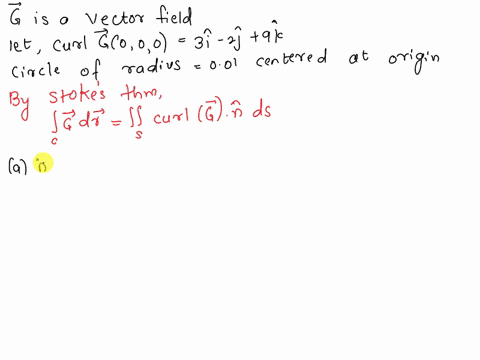 G⃗ is a vector field
let, curl G⃗(0,0,0) = 3î - 2ĵ + 9k̂
Circle of radius = 0.01 centered at origin
By Stoke's thm,
∫_C G⃗ dr⃗ = ∬_S curl (G⃗) . n̂ ds
(a) n